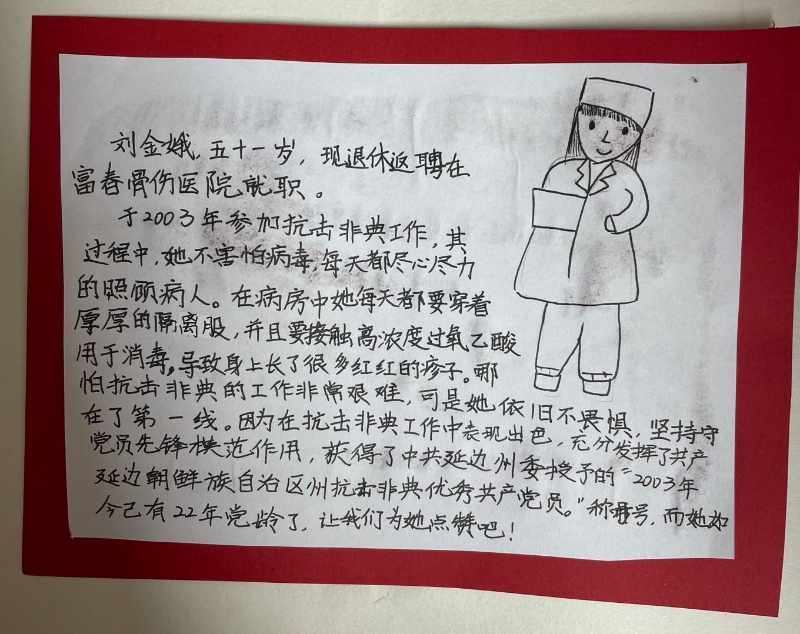 刘金娥，五十一岁，现退休返聘在
富春骨伤医院就职。
于2003年参加抗击非典工作，其
过程中，她不害怕病毒，每天都尽心尽力
的照顾病人。在病房中她每天都要穿着
厚厚的隔离服，并且要接触高浓度过氧乙酸
用于消毒，导致身上长了很多红红的疹子。哪
怕抗击非典的工作非常艰难，可是她依旧不畏惧，坚持守
在了第一线。因为在抗击非典工作中表现出色，充分发挥了共产
党员先锋模范作用，获得了中共延边州委授予的“2003年
延边朝鲜族自治区州抗击非典优秀共产党员。”称号，而她如
今已有22年党龄了，让我们为她点赞吧！